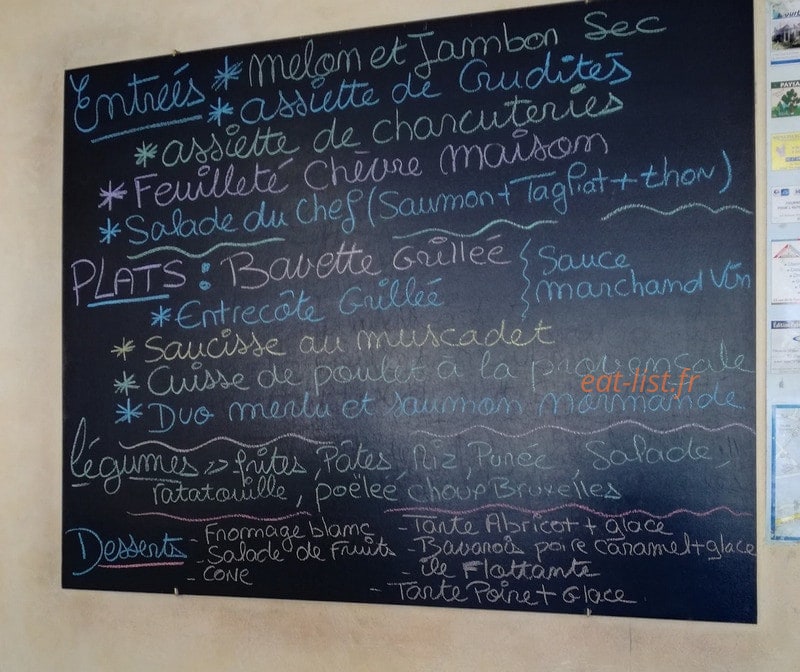 Entrées * Melon et Jambon Sec
* assiette de Crudités
* assiette de charcuteries
* Feuilleté Chèvre maison
* Salade du Chef (Saumon + Tagliat + thon)
PLATS : Bavette Grillée
Sauce
marchand Vin
* Entrecôte Grillée
* Saucisse au muscadet
* Cuisse de poulet à la provensale
eat-list.fr
* Duo merlu et saumon Normande
légumes => frites, Pâtes, Riz, Purée, Salade,
ratatouille, poëlée choup Bruxelles
Desserts
- Fnormage blanc
- Salade de Fruits
- cone
- Tarte Abricot + glace
- Bavarois poire caramel + glace
- ile Flottante
- Tarte Poire + Glace